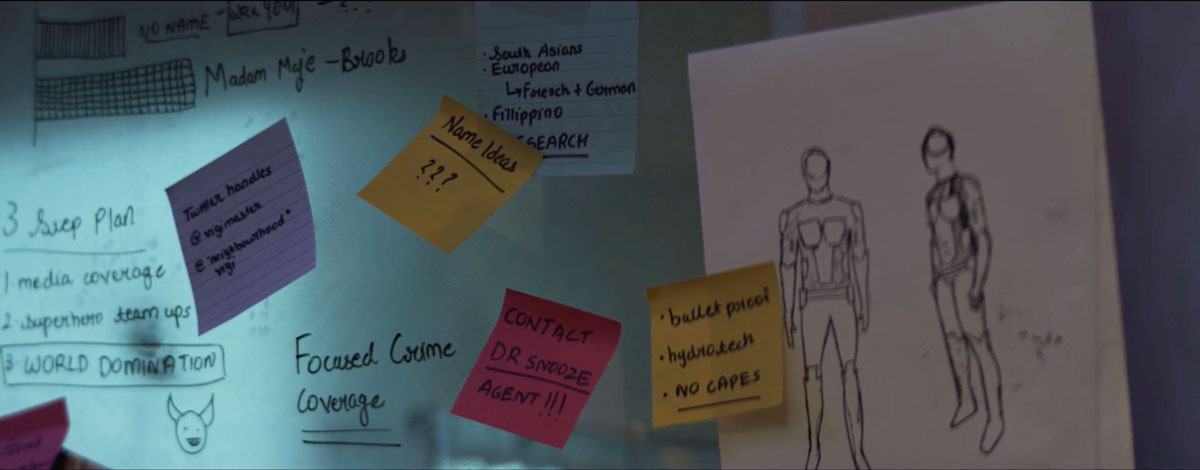 NO NAME -
Madam Moje - Brooks
• South Asians
• European
↳ French + German
• Fillippino
Name Ideas
???
Twitter handles
@vigimaster
@"neighbourhood"
vigi
3 Step Plan
1 media coverage
2 superhero team ups
3 WORLD DOMINATION
Focused Crime
Coverage
CONTACT
DR SNOOZE
AGENT!!!
• bullet proof
• hydrotech
• NO CAPES